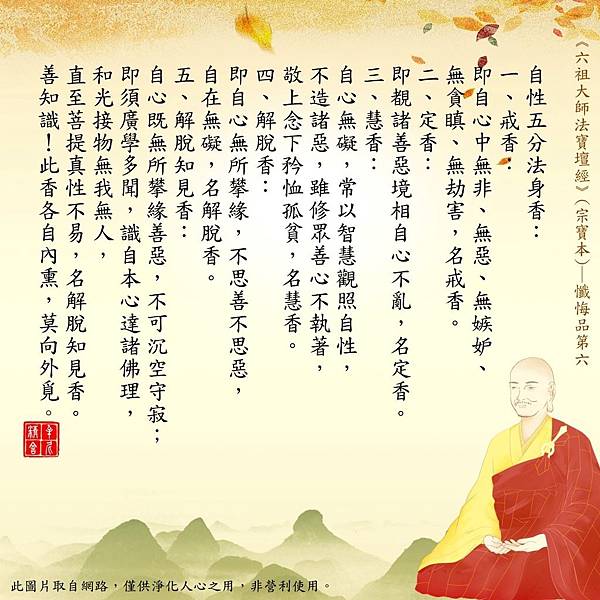 《六祖大師法寶壇經》（宗寶本）─懺悔品第六
自性五分法身香：
一、戒香：
即自心中無非、無惡、無嫉妒、
無貪瞋、無劫害，名戒香。
二、定香：
即覩諸善惡境相自心不亂，名定香。
三、慧香：
自心無礙，常以智慧觀照自性，
不造諸惡，雖修眾善心不執著，
敬上念下矜恤孤貧，名慧香。
四、解脫香：
即自心無所攀緣，不思善不思惡，
自在無礙，名解脫香。
五、解脫知見香：
自心既無所攀緣善惡，不可沉空守寂；
即須廣學多聞，識自本心達諸佛理，
和光接物無我無人，
直至菩提真性不易，名解脫知見香。
善知識！此香各自內熏，莫向外覓。
此圖片取自網路，僅供淨化人心之用，非營利使用。